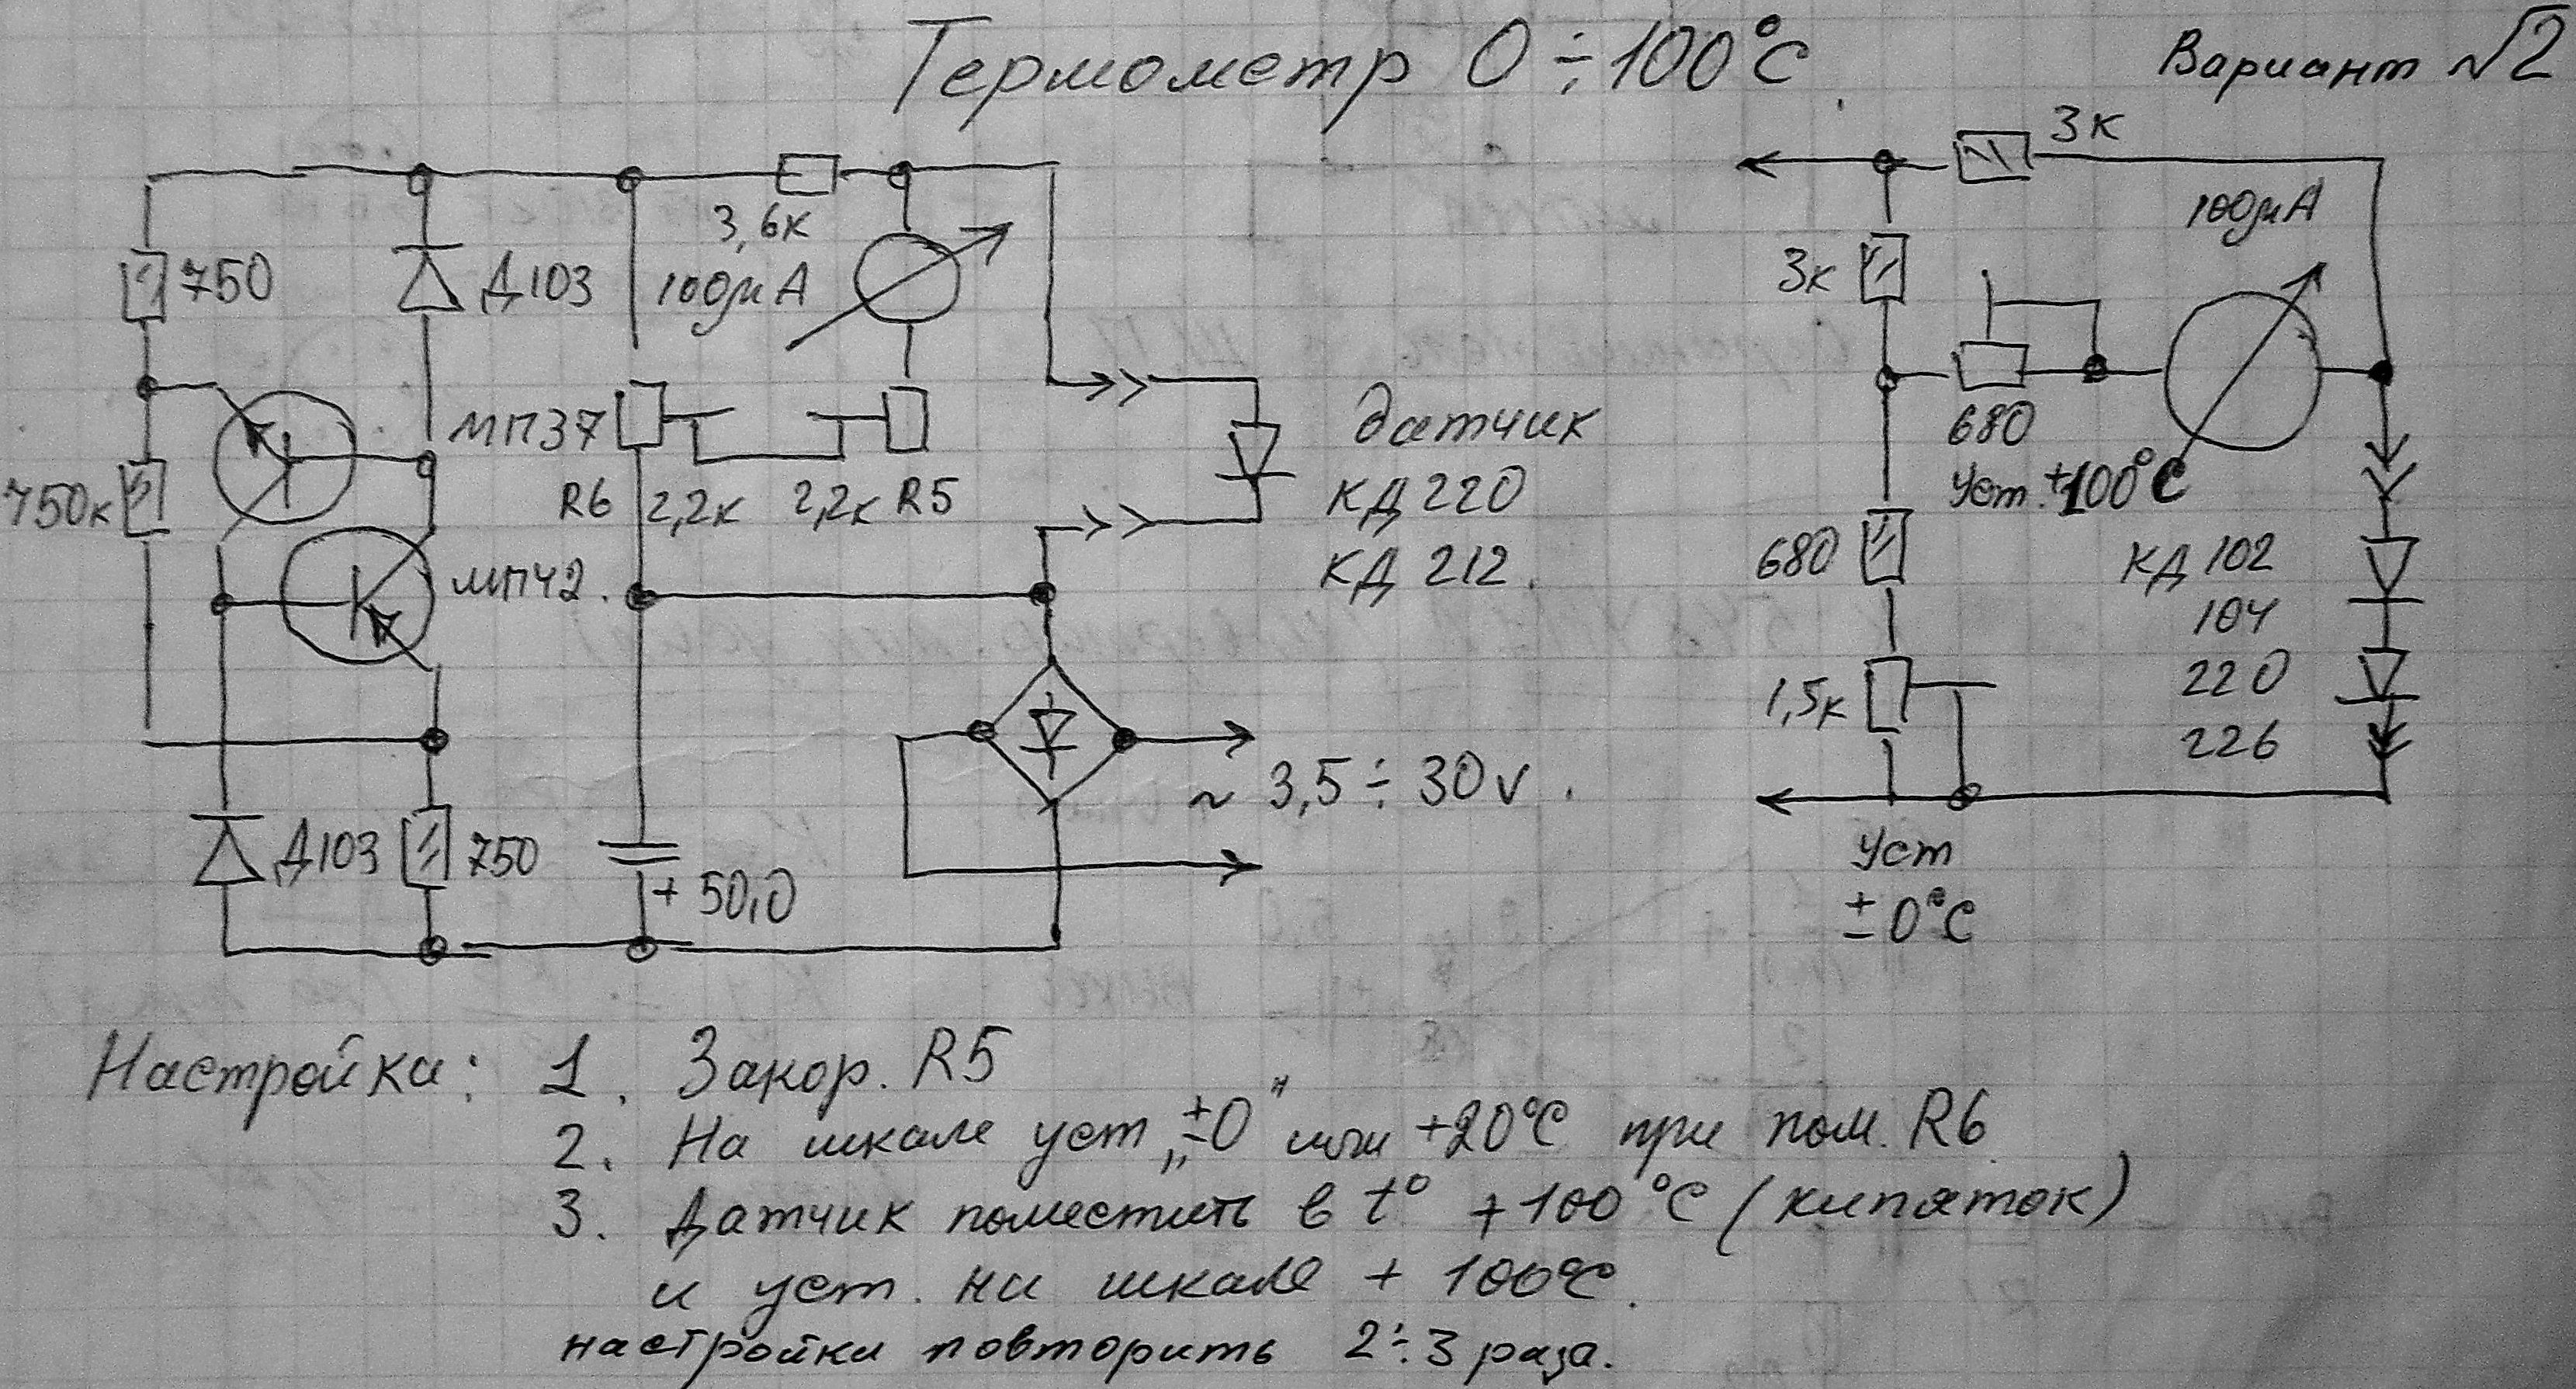 Термометр 0÷100°С.
Вариант №2
3к
3,6к
100μА
750
Д103
3к
100μА
МП37
датчик
680
750к
R6 2,2к 2,2к R5
КД 220
Уст. +100°С
МП42.
КД 212.
680
КД 102
104
1,5к
220
226
~ 3,5÷30v.
Д103
750
+ 50,0
Уст
±0°С
Настройка: 1. Закор. R5
2. На шкале уст „±0" или +20°С при пом. R6.
3. Датчик поместить в t° +100°С (кипяток)
и уст. на шкале + 100°С.
настройки повторить 2÷3 раза.